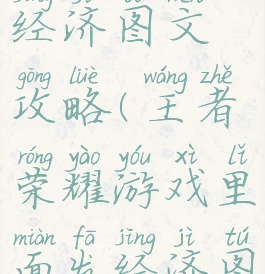 经济图文
gōng lüè wáng zhě
攻略(王者
róng yào yóu xì lǐ
荣耀游戏里
miàn fā jīng jì tú
面发经济图